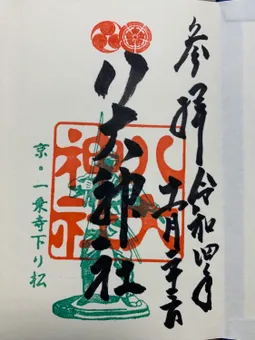 参拝
令和四年
十一月
八大神社
八大神社
京・一乗寺下り松